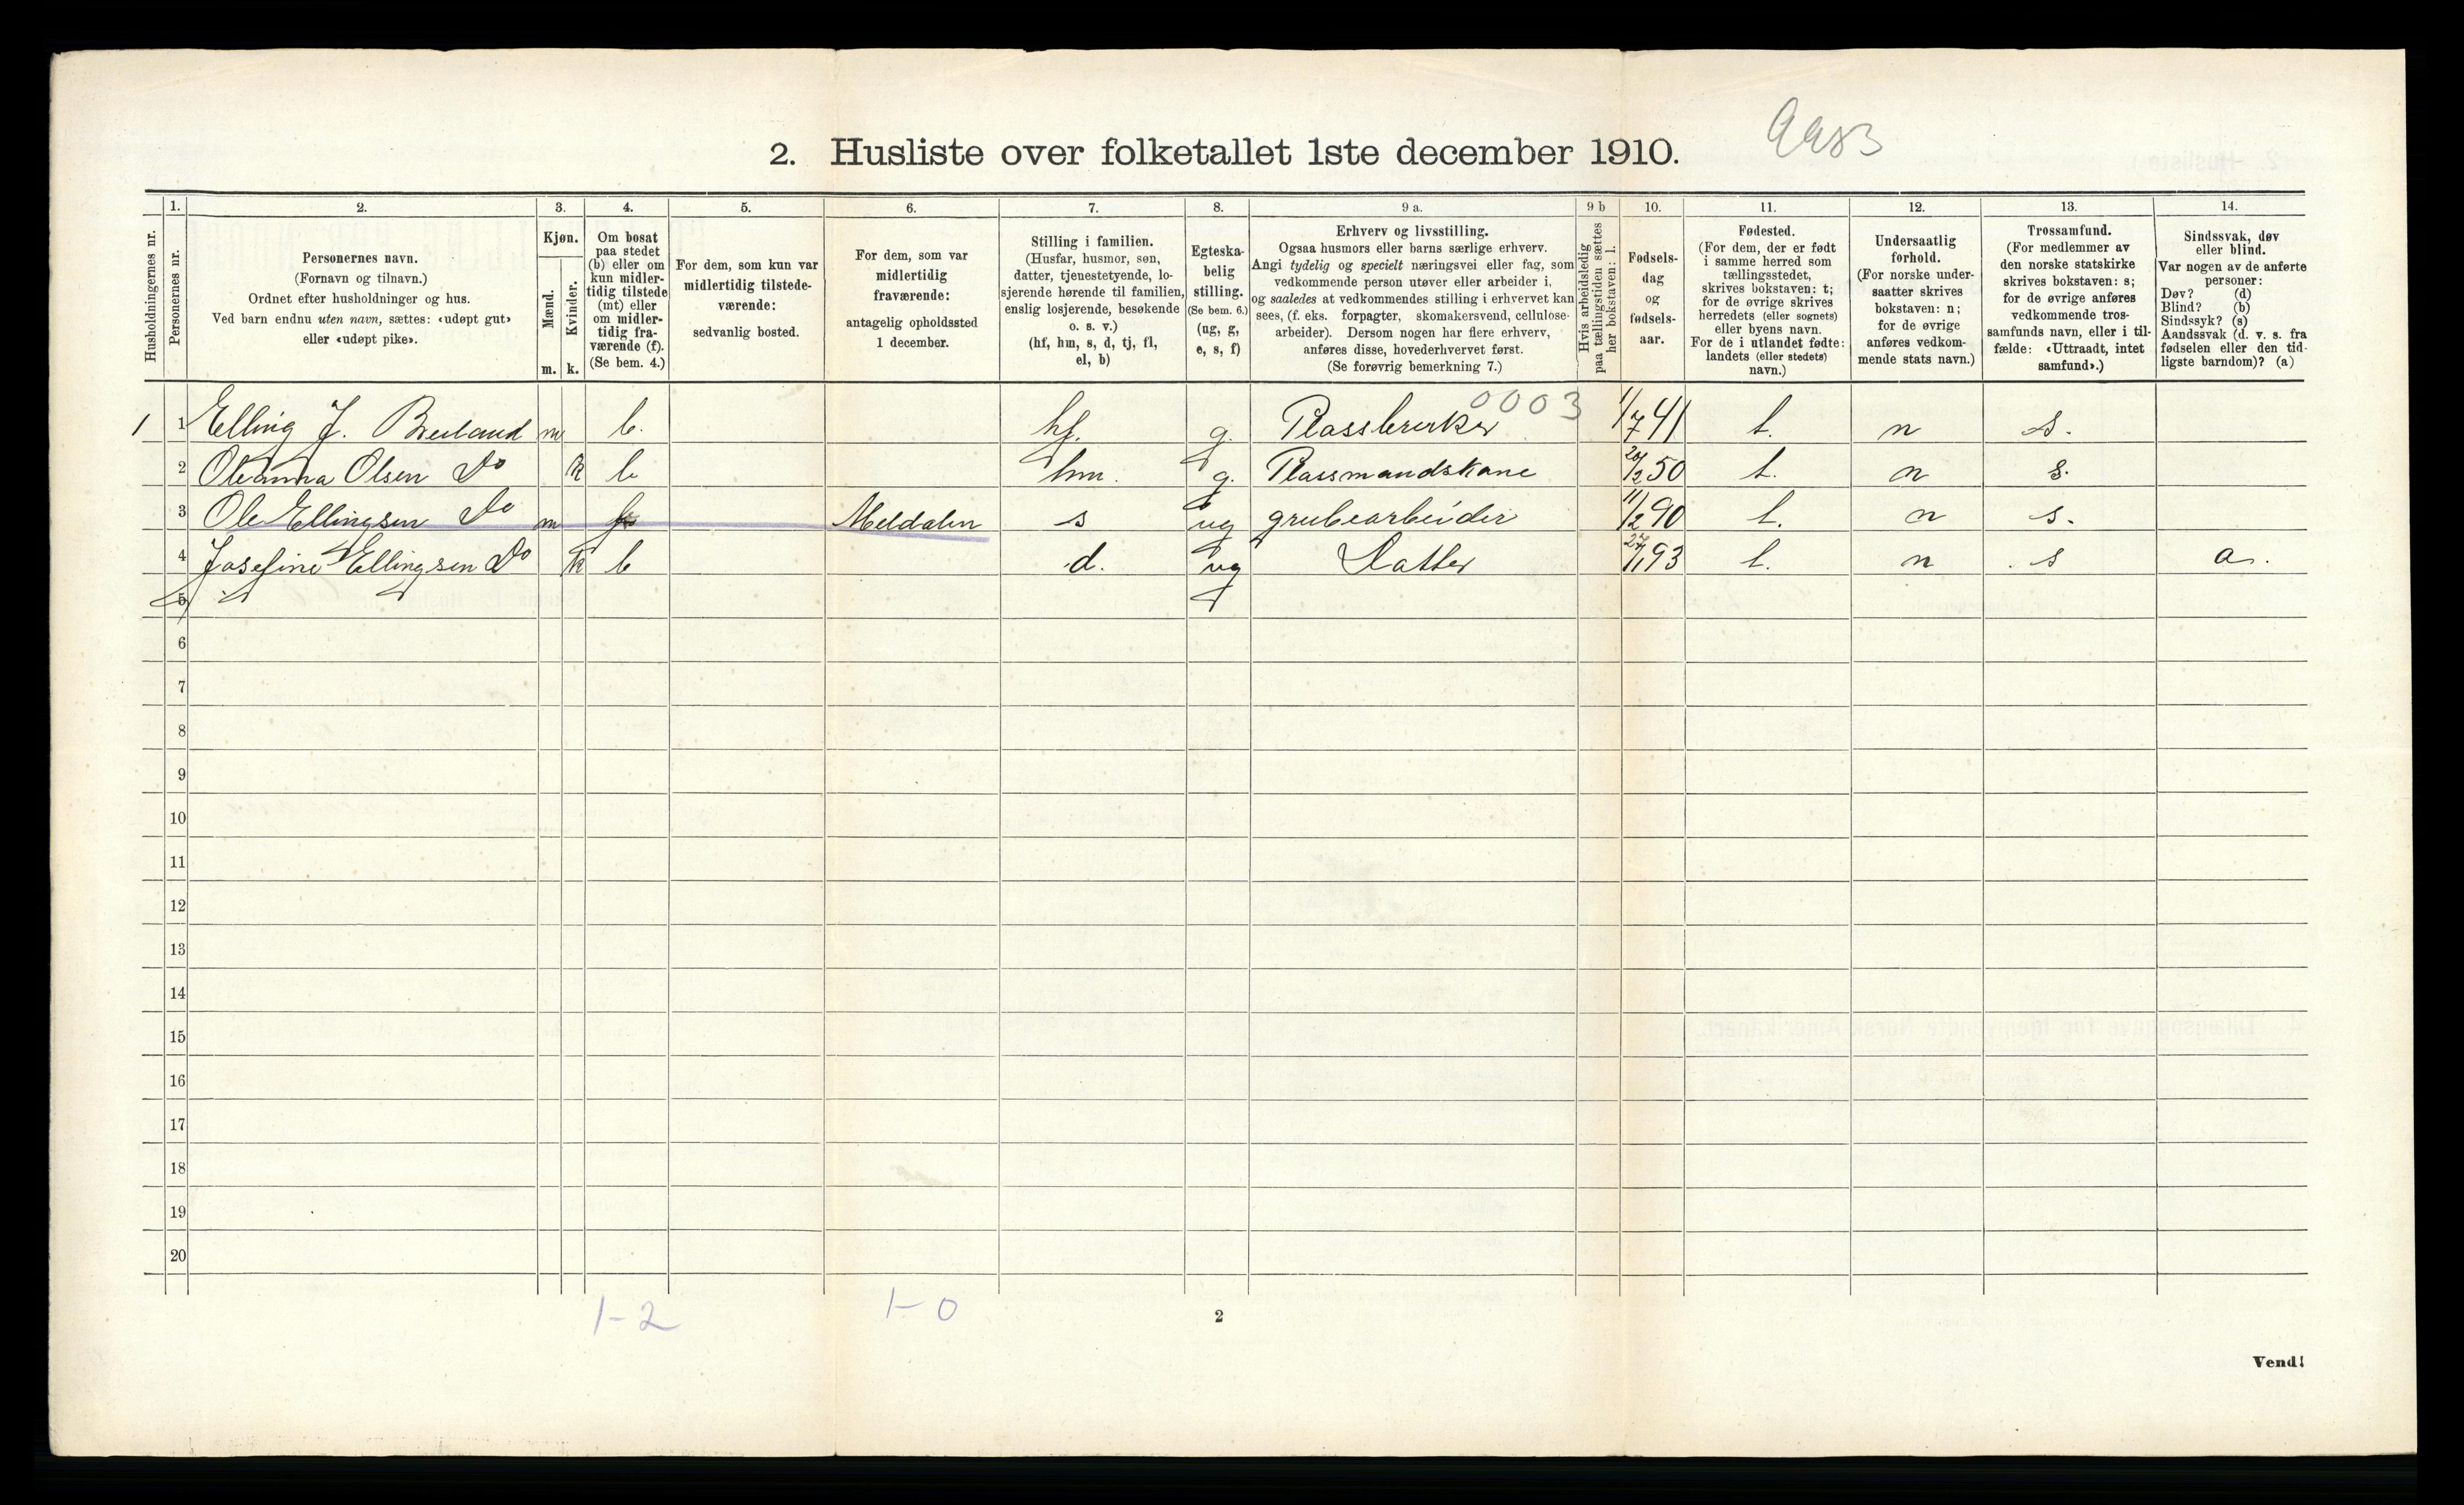 9983
2. Husliste over folketallet 1ste december 1910.
Husholdningernes nr.
1. Personernes nr.
2. Personernes navn.
(Fornavn og tilnavn.)
Ordnet efter husholdninger og hus.
Ved barn endnu uten navn, sættes: «udøpt gut»
eller «udøpt pike».
3. Kjøn.
Mænd. m.
Kvinder. k.
4. Om bosat
paa stedet
(b) eller om
kun midler-
tidig tilstede
(mt) eller
om midler-
tidig fra-
værende (f).
(Se bem. 4.)
5. For dem, som kun var
midlertidig tilstede-
værende:
sedvanlig bosted.
6. For dem, som var
midlertidig
fraværende:
antagelig opholdssted
1 december.
7. Stilling i familien.
(Husfar, husmor, søn,
datter, tjenestetyende, lo-
sjerende hørende til familien,
enslig losjerende, besøkende
o. s. v.)
(hf, hm, s, d, tj, fl,
el, b)
8. Egteska-
belig
stilling.
(Se bem. 6.)
(ug, g,
e, s, f)
9 a. Erhverv og livsstilling.
Ogsaa husmors eller barns særlige erhverv.
Angi tydelig og specielt næringsvei eller fag, som
vedkommende person utøver eller arbeider i,
og saaledes at vedkommendes stilling i erhvervet kan
sees, (f. eks. forpagter, skomakersvend, cellulose-
arbeider). Dersom nogen har flere erhverv,
anføres disse, hovederhvervet først.
(Se forøvrig bemerkning 7.)
9 b Hvis arbeidsledig
paa tællingstiden sættes
her bokstaven: l.
10. Fødsels-
dag
og
fødsels-
aar.
11. Fødested.
(For dem, der er født
i samme herred som
tællingsstedet,
skrives bokstaven: t;
for de øvrige skrives
herredets (eller sognets)
eller byens navn.
For de i utlandet fødte:
landets (eller stedets)
navn.)
12. Undersaatlig
forhold.
(For norske under-
saatter skrives
bokstaven: n;
for de øvrige
anføres vedkom-
mende stats navn.)
13. Trossamfund.
(For medlemmer av
den norske statskirke
skrives bokstaven: s;
for de øvrige anføres
vedkommende tros-
samfunds navn, eller i til-
fælde: «Uttraadt, intet
samfund».)
14. Sindssvak, døv
eller blind.
Var nogen av de anførte
personer:
Døv? (d)
Blind? (b)
Sindssyk? (s)
Aandssvak (d. v. s. fra
fødselen eller den tid-
ligste barndom)? (a)
0003
1 1 Elling J. Breiland m b. hf. g. Plassbruker 1/7 41 t. n s.
2 Oleanna Olsen Do k b hm. g. Plassmandskone 20/2 50 t. n s.
3 Ole Ellingsen Do m f Meldalen s ug grubearbeider 11/2 90 t. n s.
4 Josefine Ellingsen Do k b d. ug Datter 27/1 93 t. n s a.
5
6
7
8
9
10
11
12
13
14
15
16
17
18
19
20
1-2 1-0
2
Vend!